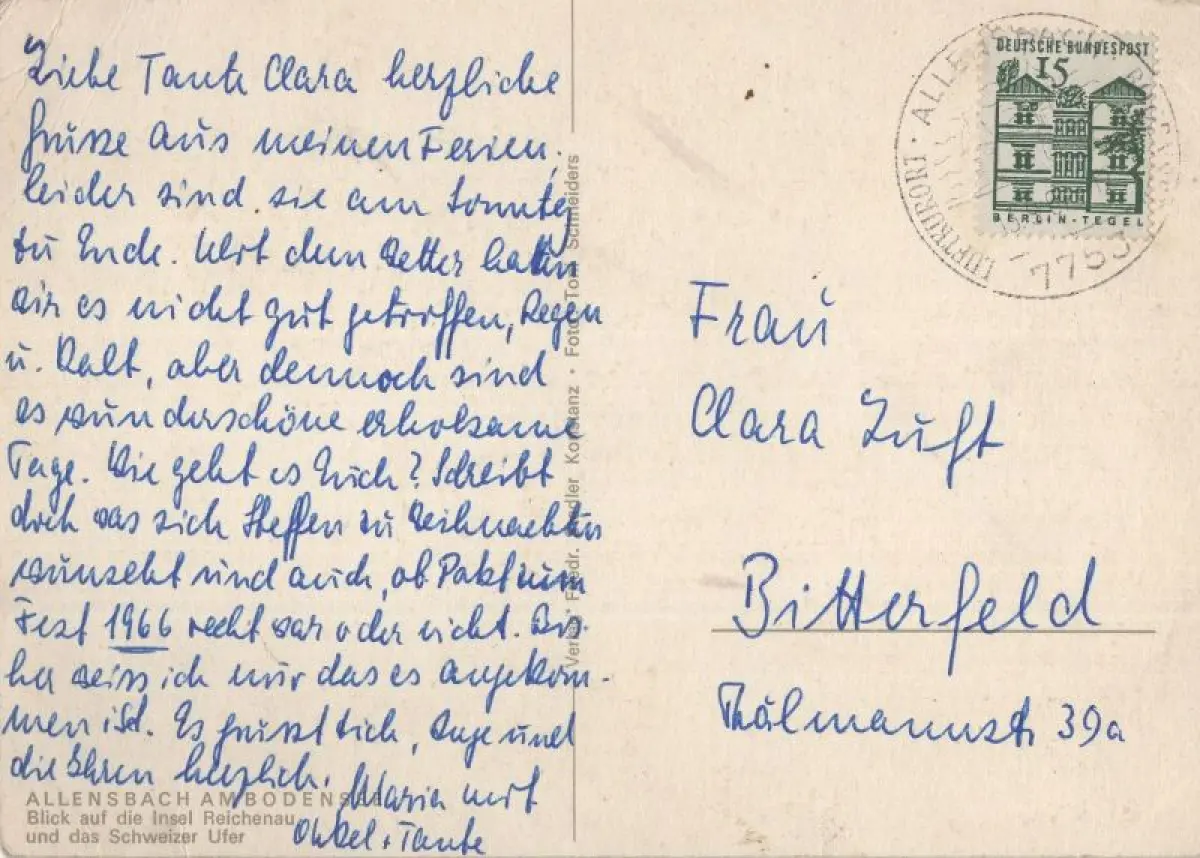 Liebe Tante Clara herzliche
Grüsse aus meinen Ferien,
leider sind sie am Sonntag
zu Ende. Mit dem Wetter hatten
wir es nicht gut getroffen, Regen
u. Kalt, aber dennoch sind
es wunderschöne erholsame
Tage. Wie geht es Euch? Schreibt
doch was sich Steffen zu Weihnachten
wünscht und auch, ob Pakt zum
Fest 1966 recht war oder nicht. Bis-
her weiss ich nur das es angekom-
men ist. Es grüsst Dich, Inge und
die Ihren herzlich. Maria mit
Onkel + Tante
ALLENSBACH AM BODENSEE
Blick auf die Insel Reichenau
und das Schweizer Ufer
Verlag Friedr. Konstanz · Foto Toni Schneiders
DEUTSCHE BUNDESPOST
15
BERLIN-TEGEL
LUFTKURORT · ALLENSBACH
7753
Frau
Clara Luft
Bitterfeld
Thälmannstr 39a